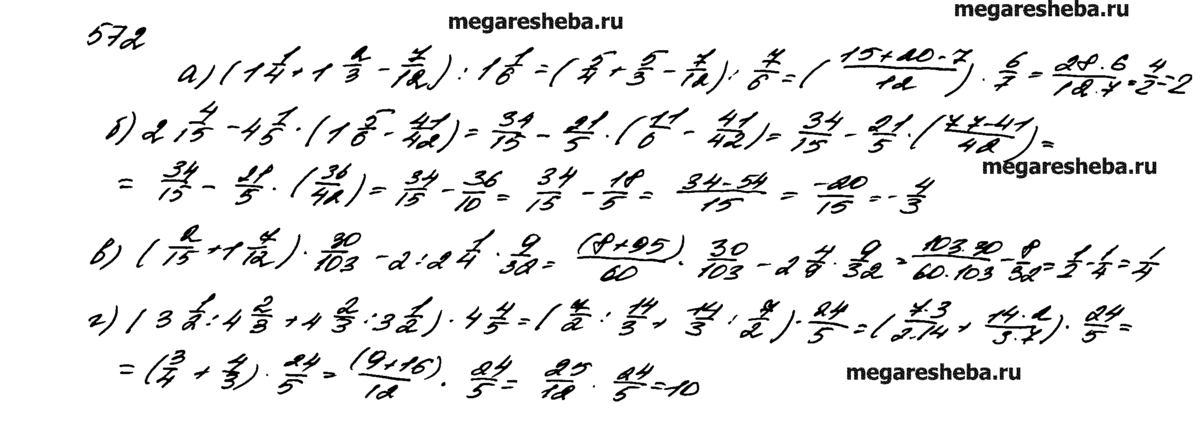 megaresheba.ru
megaresheba.ru
572
а) (1 1/4 + 1 2/3 - 7/12) : 1 1/6 = (5/4 + 5/3 - 7/12) : 7/6 = ((15+20-7)/12) · 6/7 = (28·6)/(12·7) = 4/2 = 2
б) 2 4/15 - 4 1/5 · (1 5/6 - 41/42) = 34/15 - 21/5 · (11/6 - 41/42) = 34/15 - 21/5 · ((77-41)/42) =
megaresheba.ru
= 34/15 - 21/5 · (36/42) = 34/15 - 36/10 = 34/15 - 18/5 = (34-54)/15 = -20/15 = - 4/3
в) (2/15 + 1 7/12) · 30/103 - 2 : 2 1/4 · 9/32 = (8+95)/60 · 30/103 - 2 4/9 · 9/32 = (103·30)/(60·103) - 8/32 = 1/2 - 1/4 = 1/4
г) (3 1/2 : 4 2/3 + 4 2/3 : 3 1/2) · 4 4/5 = (7/2 : 14/3 + 14/3 : 7/2) · 24/5 = ((7·3)/(2·14) + (14·2)/(3·7)) · 24/5 =
= (3/4 + 4/3) · 24/5 = (9+16)/12 · 24/5 = 25/12 · 24/5 = 10
megaresheba.ru